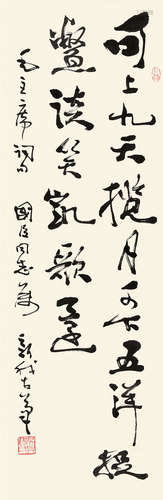 可上九天揽月可下五洋捉
鳖谈笑凯歌还
毛主席词句
國臣同志属